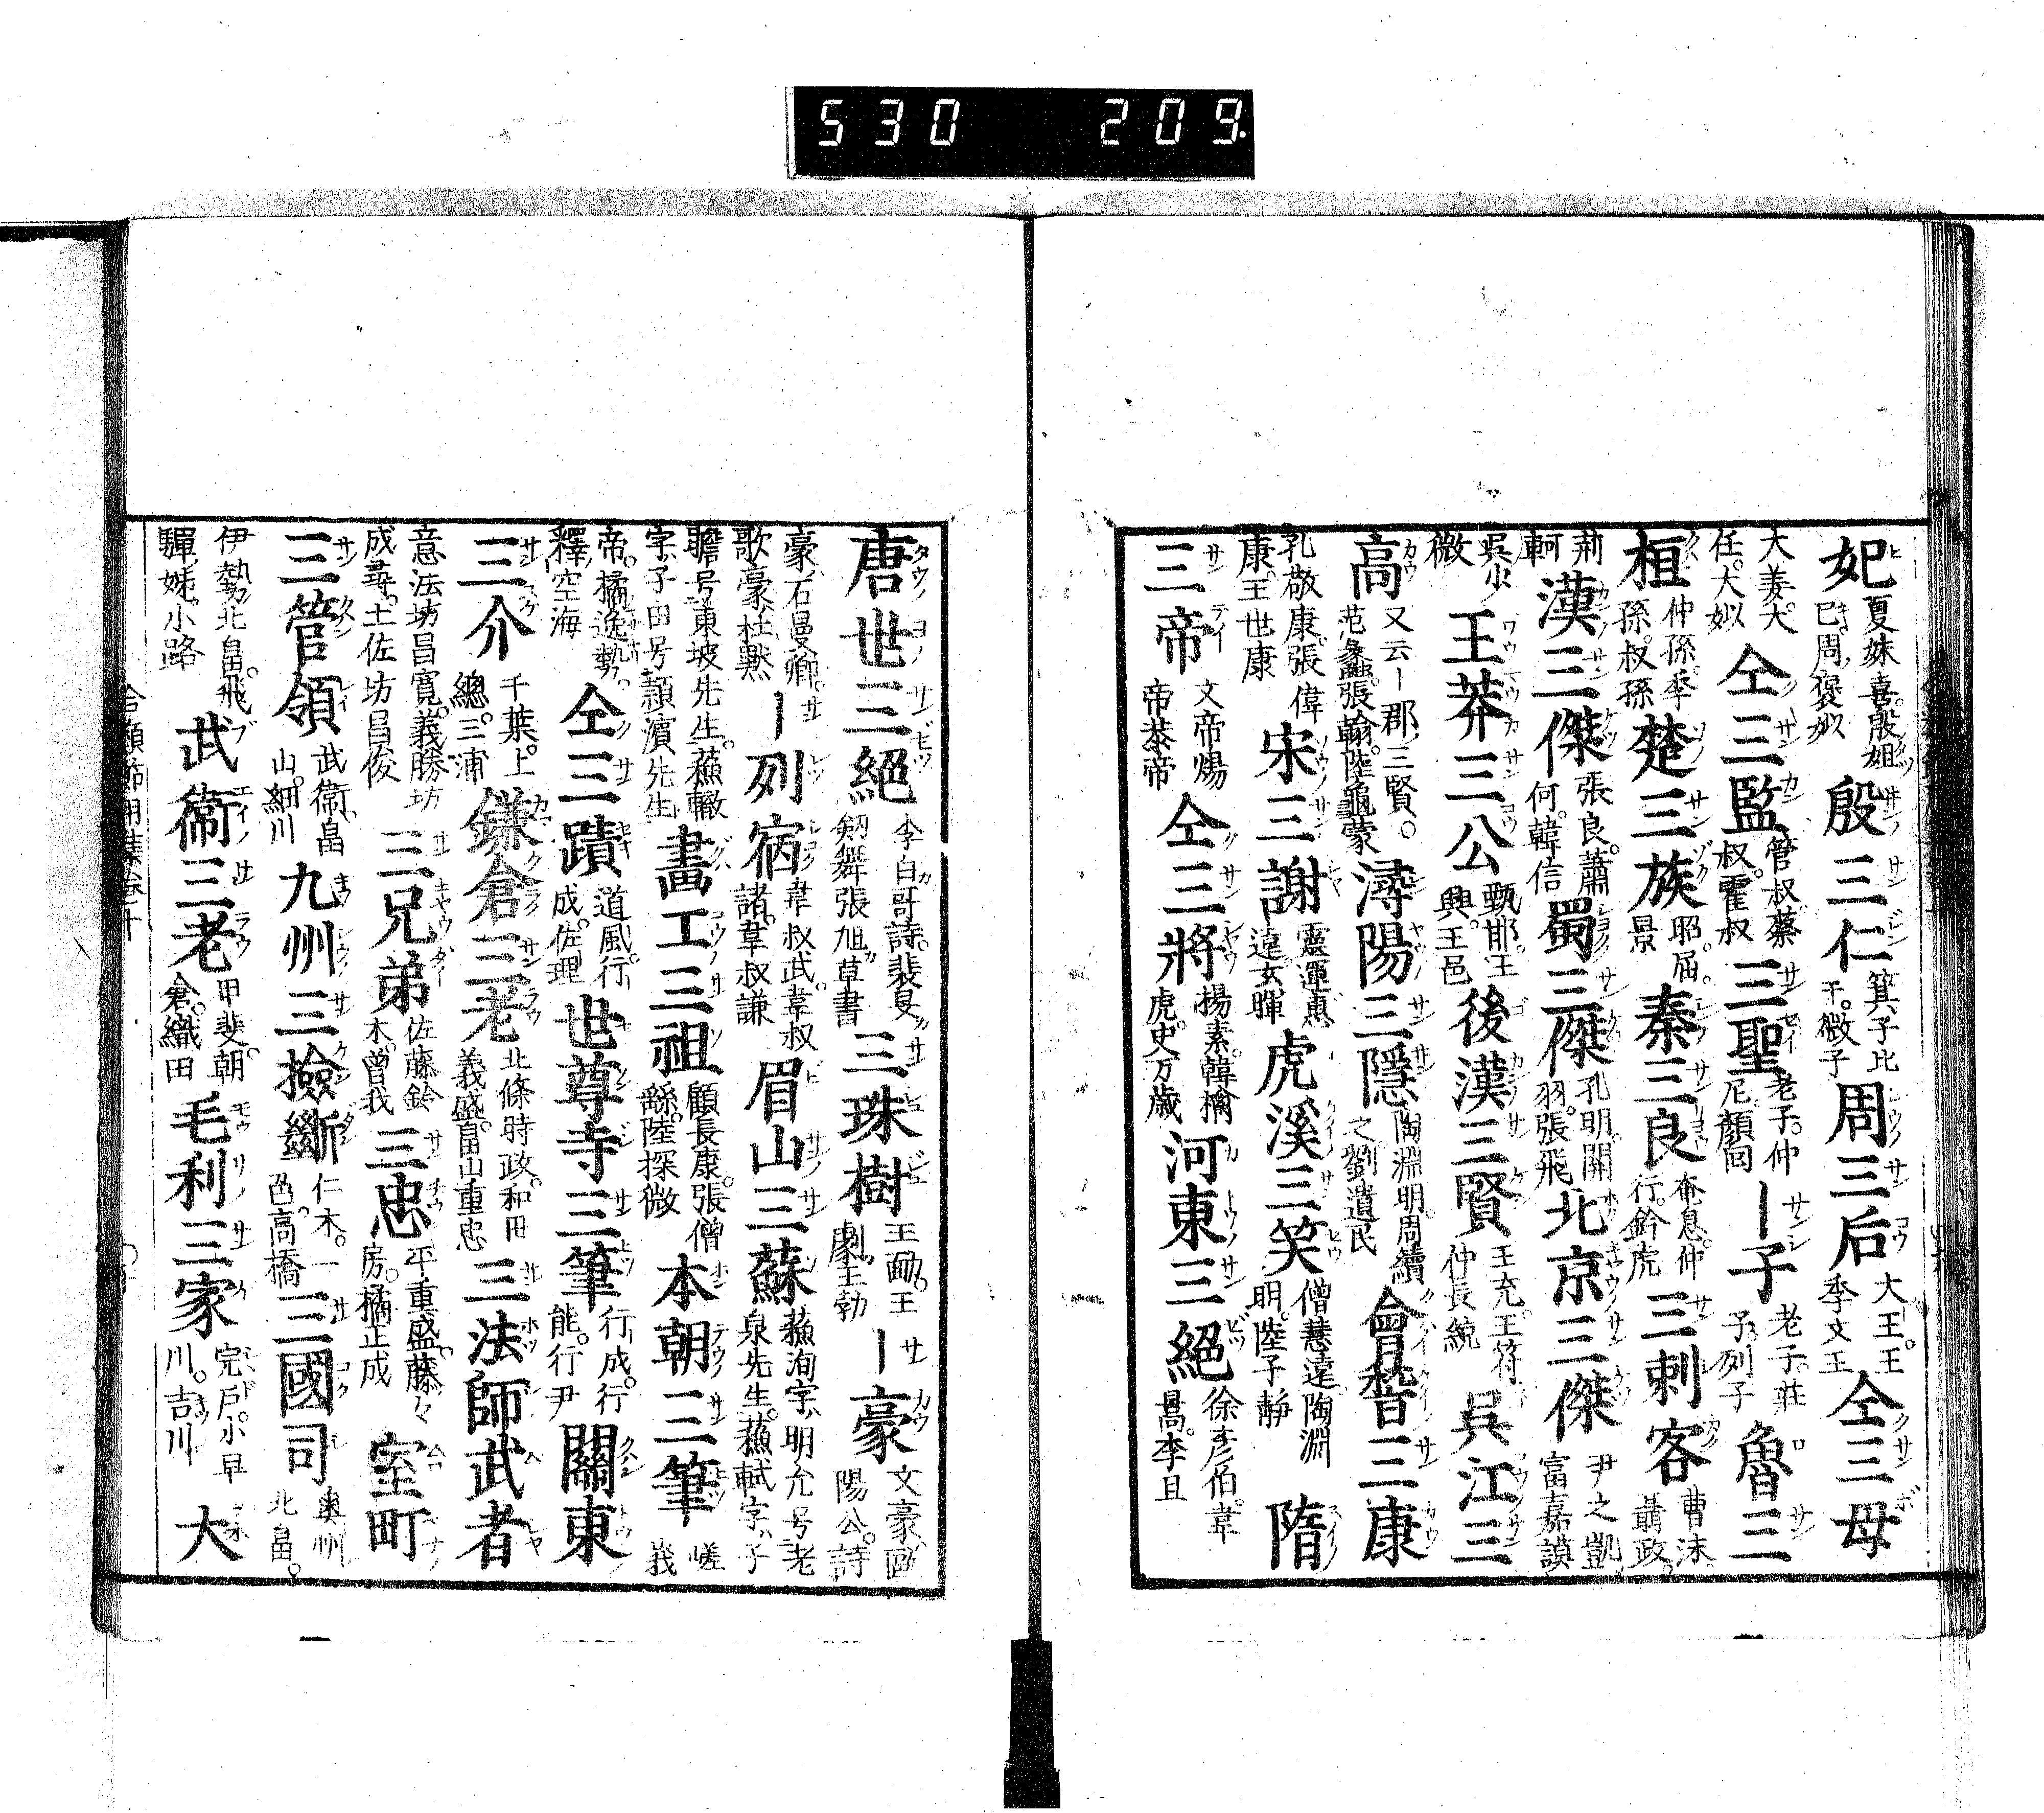 530 209
妃 夏妹喜。殷妲己。周ノ褒姒 殷三仁 箕子比干。微子 周三后 大王。王季文王 仝三母
大姜大任。大姒 仝三監 管叔蔡叔。霍叔 三聖 老子。仲尼。顏回 ー子 老子。莊子列子 魯三
桓 仲孫。季孫。叔孫 楚三族 昭。屈。景 秦三良 奄息。仲行。鈐虎 三刺客 曹沫聶政。
荊軻 漢三傑 張良。蕭何。韓信 蜀三傑 孔明關羽。張飛 北京三傑 尹之凱富嘉謨
吳少微 王莽三公 甄邯。王興。王邑 後漢三賢 王充。王符仲長統 吳江三
高 又云ー郡三賢。范蠡張翰。陸龜蒙 潯陽三隱 陶淵明。周續之。劉遺民 會稽三康
孔敬康。張偉康。王世康 宋三謝 靈運惠連。玄暉 虎溪三笑 僧慧遠陶淵明。陸子靜 隋
三帝 文帝煬帝恭帝 仝三將 揚素。韓檎虎。史万歲 河東三絕 徐彥伯。韋暠。李且
唐世三絕 李白哥詩。裴旻劔舞張旭草書 三珠樹 王勔。王勮。王勃 ー豪 文豪歐陽公。詩
豪石曼卿。歌豪杜默 ー列宿 韋叔武。韋叔諸。韋叔謙 眉山三蘇 蘓洵字明允号老泉先生。蘓軾字子
瞻号東坡先生。蘓轍字子田号潁濱先生 畫工三祖 顧長康。張僧繇。陸探微 本朝三筆 嵯峩
帝。橘逸勢。釋空海 仝三蹟 道風。行成。佐理 世尊寺三筆 行成。行能。行尹 關東
三介 千葉。上總。三浦 鎌倉三老 北條時政。和田義盛。畠山重忠 三法師武者
意法坊昌寬。義勝坊成尋。土佐坊昌俊 三兄弟 佐藤鈴木。曾我 三忠 平重盛。藤々房。橘正成 室町
三管領 武衞畠山。細川 九州三撿斷 仁木。一色。高橋 三國司 奧州北畠。
伊勢北畠。飛驒姊小路 武衞三老 甲斐。朝倉。織田 毛利三家 完戶。小早川。吉川 大
合類節用集卷十